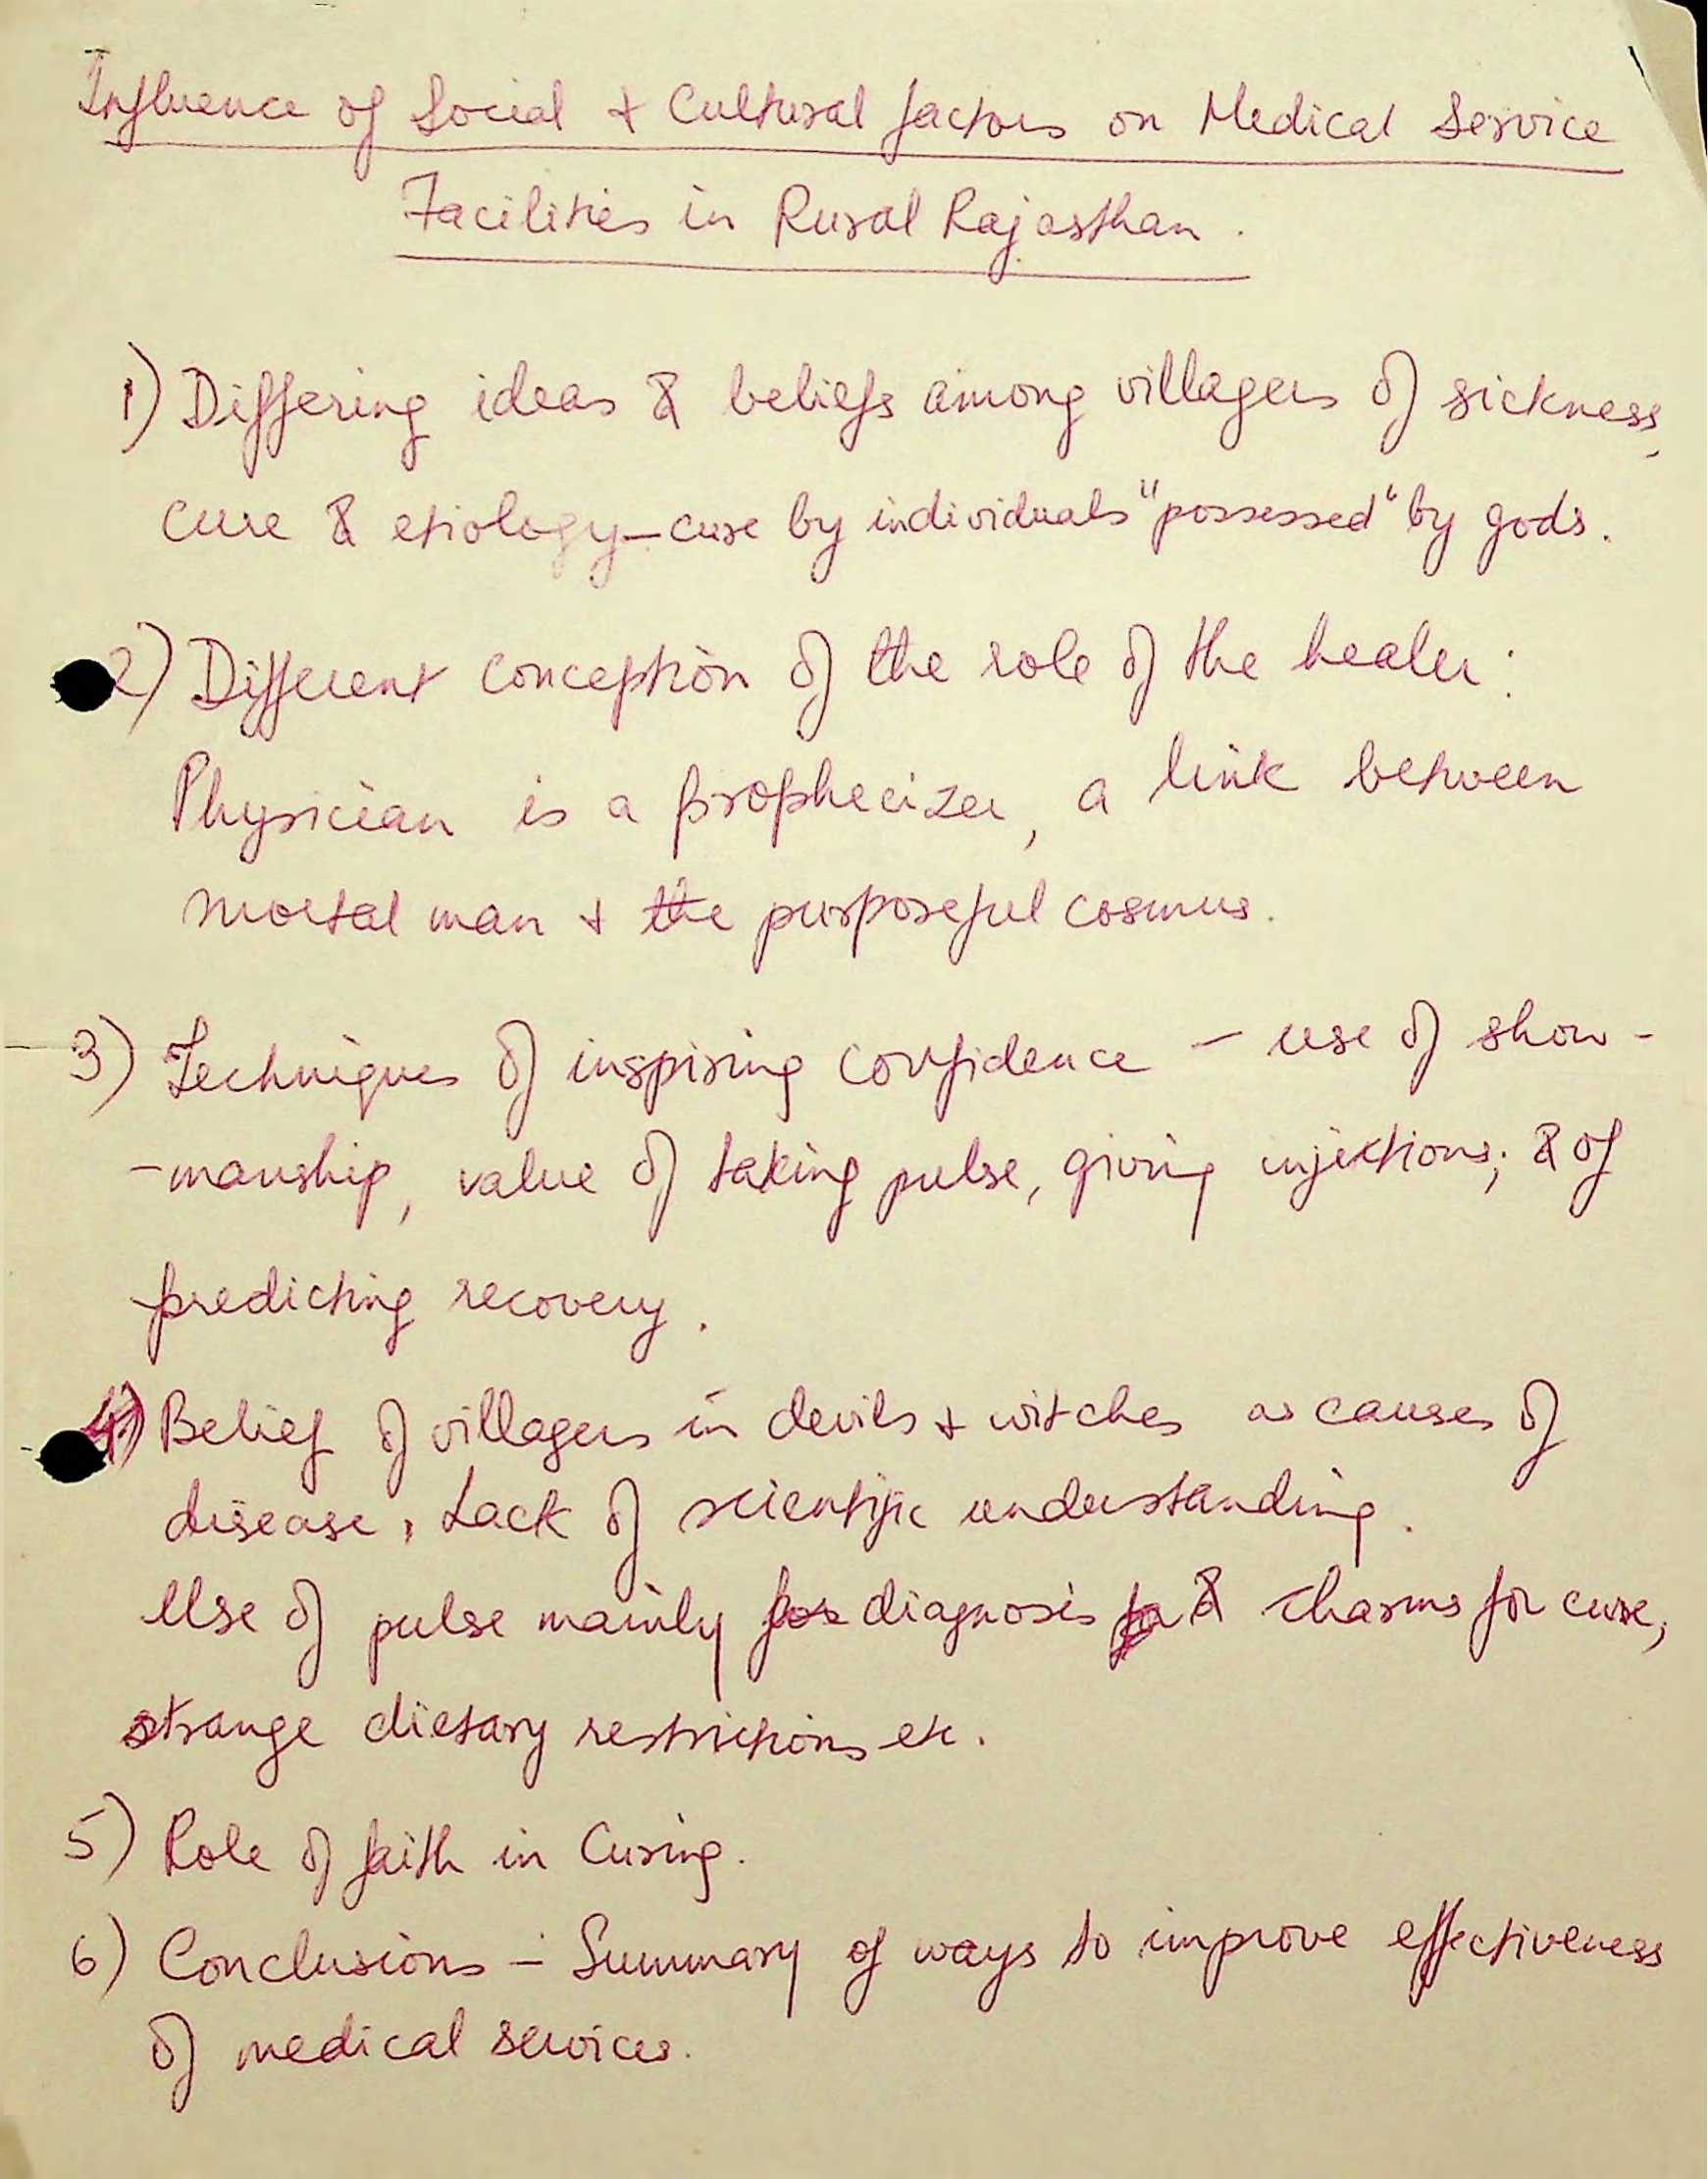 Influence of Social + Cultural factors on Medical Service
Facilities in Rural Rajasthan.
1) Differing ideas & beliefs among villagers of sickness,
cure & etiology – cure by individuals "possessed" by gods.
2) Different conception of the role of the healer:
Physician is a prophecizer, a link between
mortal man + the purposeful cosmus.
3) Techniques of inspiring confidence – use of show-
-manship, value of taking pulse, giving injections; & of
predicting recovery.
4) Belief of villagers in devils + witches as causes of
disease, Lack of scientific understanding.
Use of pulse mainly for diagnosis & charms for cure,
strange dietary restrictions etc.
5) Role of faith in Curing.
6) Conclusions – Summary of ways to improve effectiveness
of medical services.